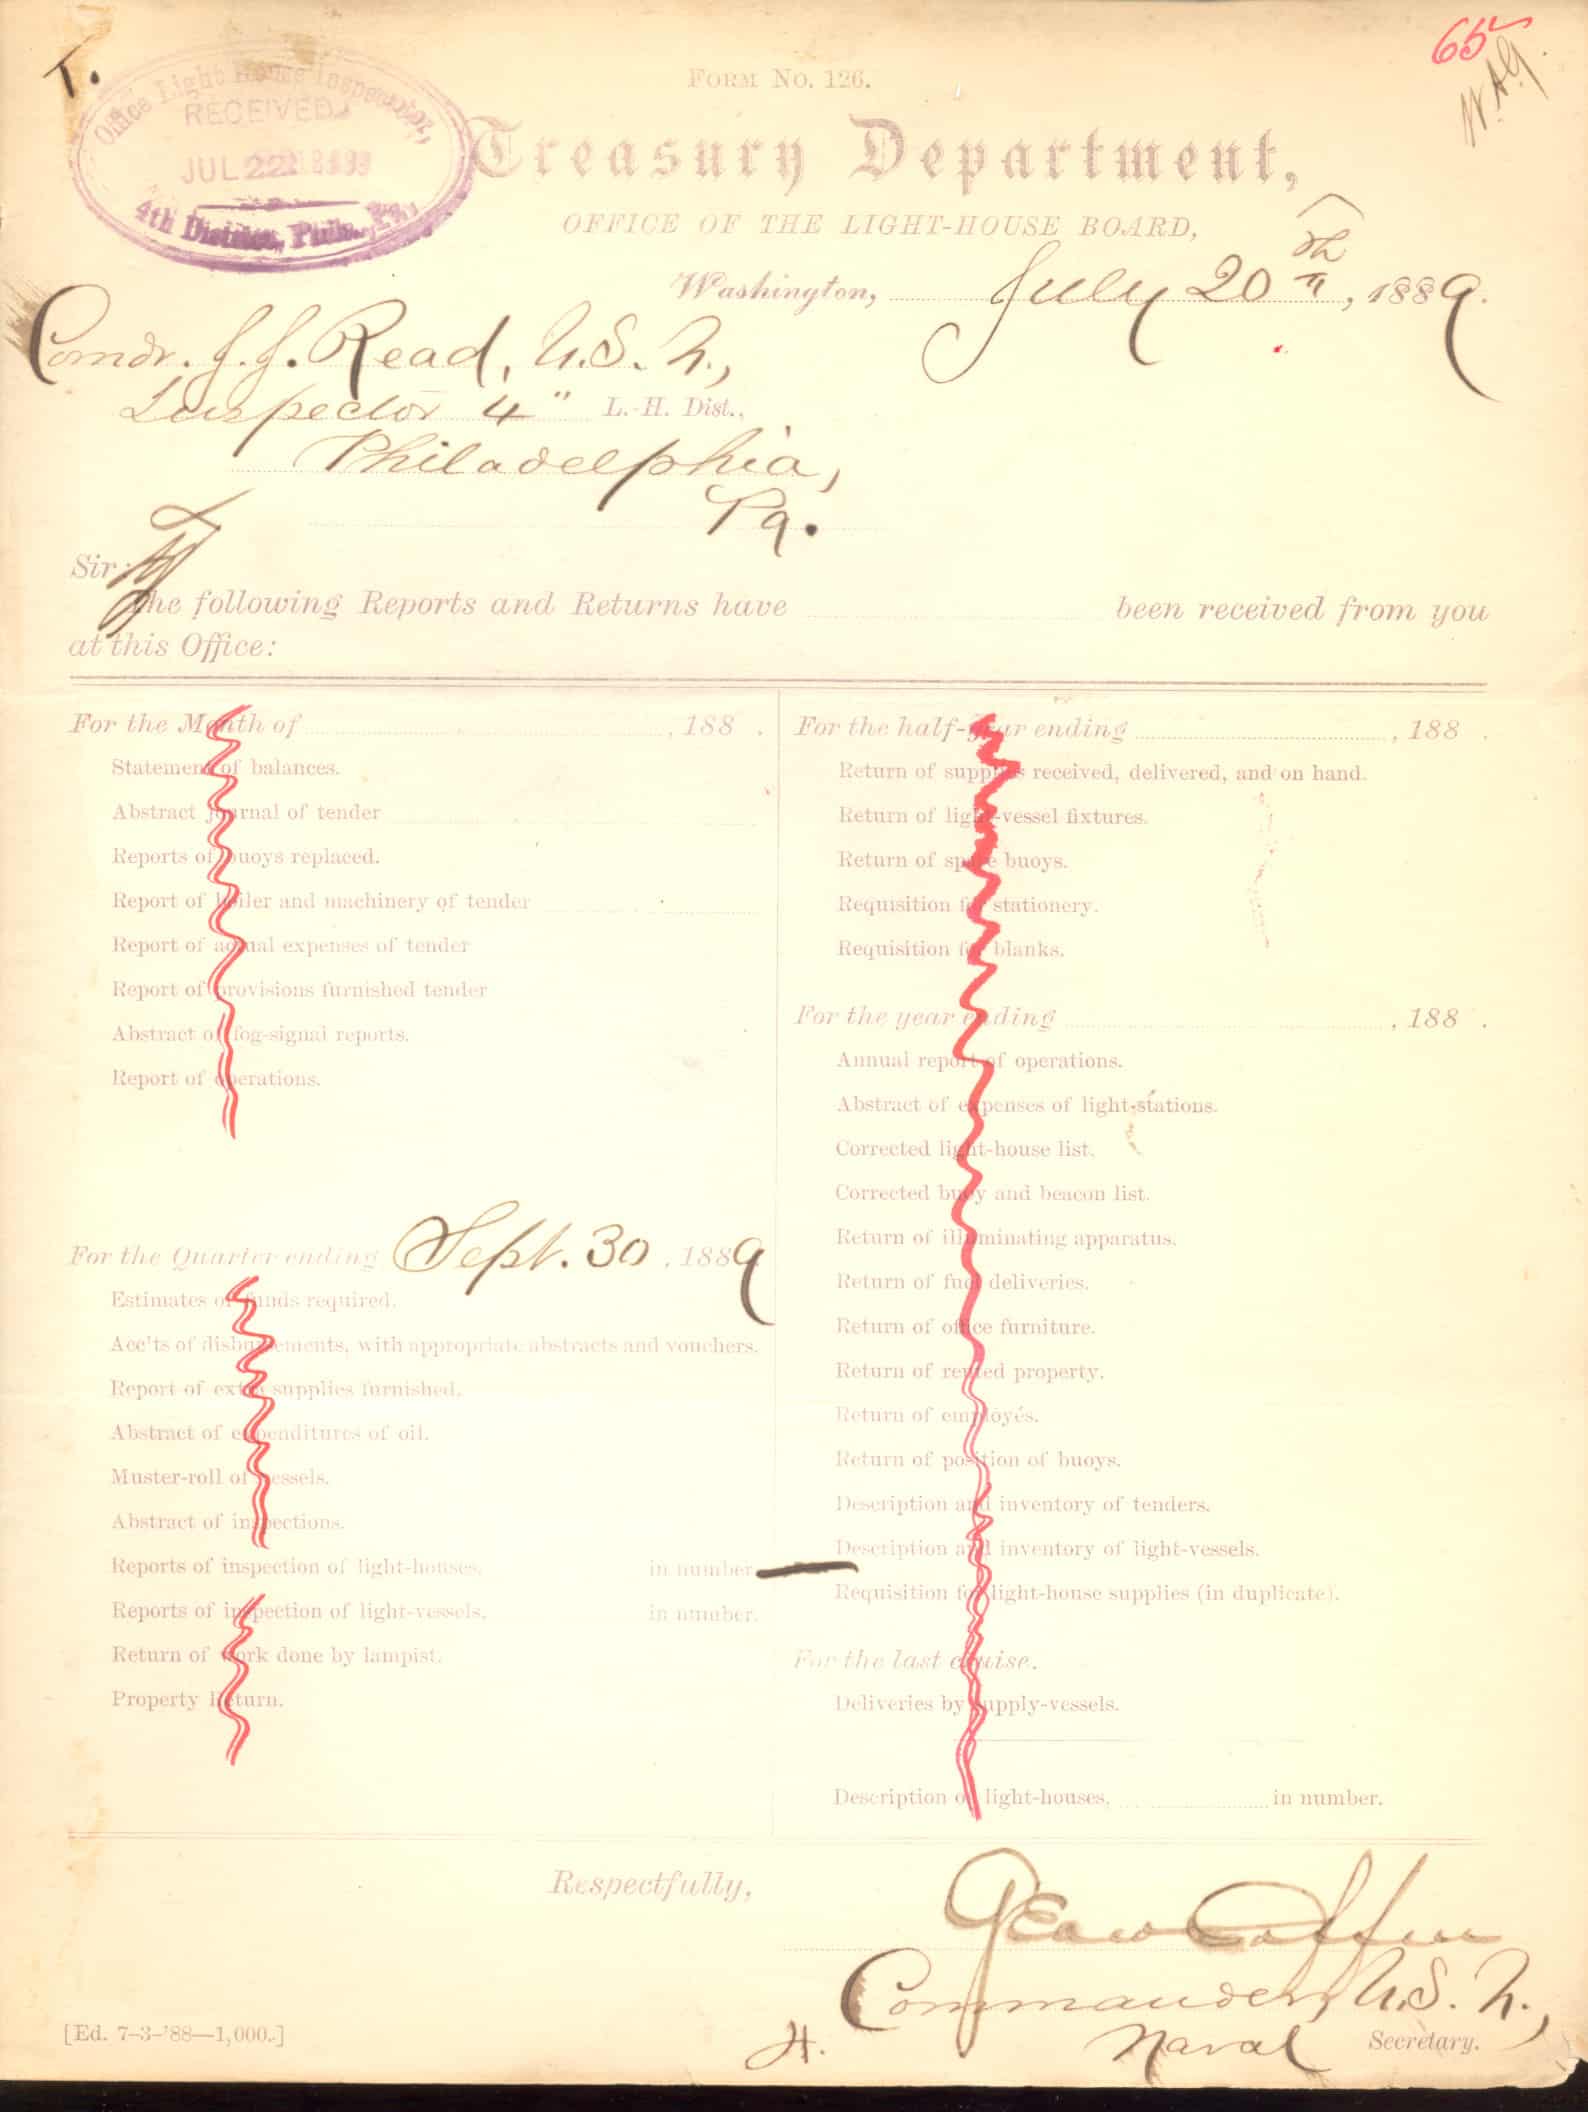 65
W.A.G.
T.
Office Light House Inspector,
RECEIVED
JUL 22 1889
4th District, Phila., Pa.
FORM No. 126.
Treasury Department,
OFFICE OF THE LIGHT-HOUSE BOARD,
Washington, July 20th, 1889.
Comdr. J. J. Read, U.S.N.,
Inspector 4" L.-H. Dist.,
Philadelphia,
Pa.
Sir:
The following Reports and Returns have been received from you
at this Office:
For the Month of , 188 .
Statement of balances.
Abstract journal of tender
Reports of buoys replaced.
Report of boiler and machinery of tender
Report of actual expenses of tender
Report of provisions furnished tender
Abstract of fog-signal reports.
Report of operations.
For the Quarter ending Sept. 30, 1889
Estimates of funds required.
Acc'ts of disbursements, with appropriate abstracts and vouchers.
Report of extra supplies furnished.
Abstract of expenditures of oil.
Muster-roll of vessels.
Abstract of inspections.
Reports of inspection of light-houses, in number
Reports of inspection of light-vessels, in number.
Return of work done by lampist.
Property Return.
For the half-year ending , 188 .
Return of supplies received, delivered, and on hand.
Return of light-vessel fixtures.
Return of spare buoys.
Requisition for stationery.
Requisition for blanks.
For the year ending , 188 .
Annual report of operations.
Abstract of expenses of light-stations.
Corrected light-house list.
Corrected buoy and beacon list.
Return of illuminating apparatus.
Return of fuel deliveries.
Return of office furniture.
Return of rented property.
Return of employés.
Return of position of buoys.
Description and inventory of tenders.
Description and inventory of light-vessels.
Requisition for light-house supplies (in duplicate).
For the last cruise.
Deliveries by supply-vessels.
Description of light-houses, in number.
Respectfully,
Geo W Coffin
Commander, U.S.N.,
H. Naval Secretary.
[Ed. 7-3-'88—1,000.]